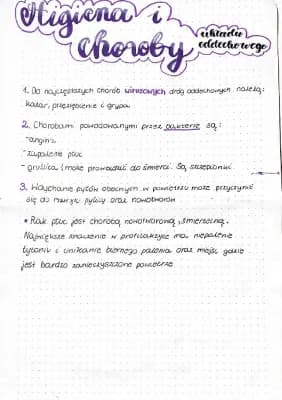 Higiena i
choroby
układu
oddechowego
1. Do najczęstszych chorób wirusowych dróg oddechowych należą:
katar, przeziębienie i grypa
2. Chorobami powodowanymi przez bakterie są:
-angina
-zapalenie płuc
-gruźlica (może prowadzić do śmierci. Są szczepionki
3. Wdychanie pyłów obecnych w powietrzu może przyczynić
się do rozwoju pylicy oraz nowotworów
* Rak płuc jest chorobą nowotworową, śmiertelną.
Największe znaczenie w profilaktyce ma niepalenie
tytoniu i unikanie biernego palenia oraz miejsc gdzie
jest bardzo zanieczyszczone powietrze